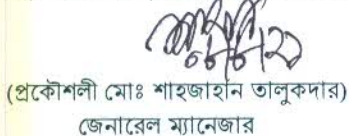 (প্রকৌশলী মোঃ শাহজাহান তালুকদার)
জেনারেল ম্যানেজার